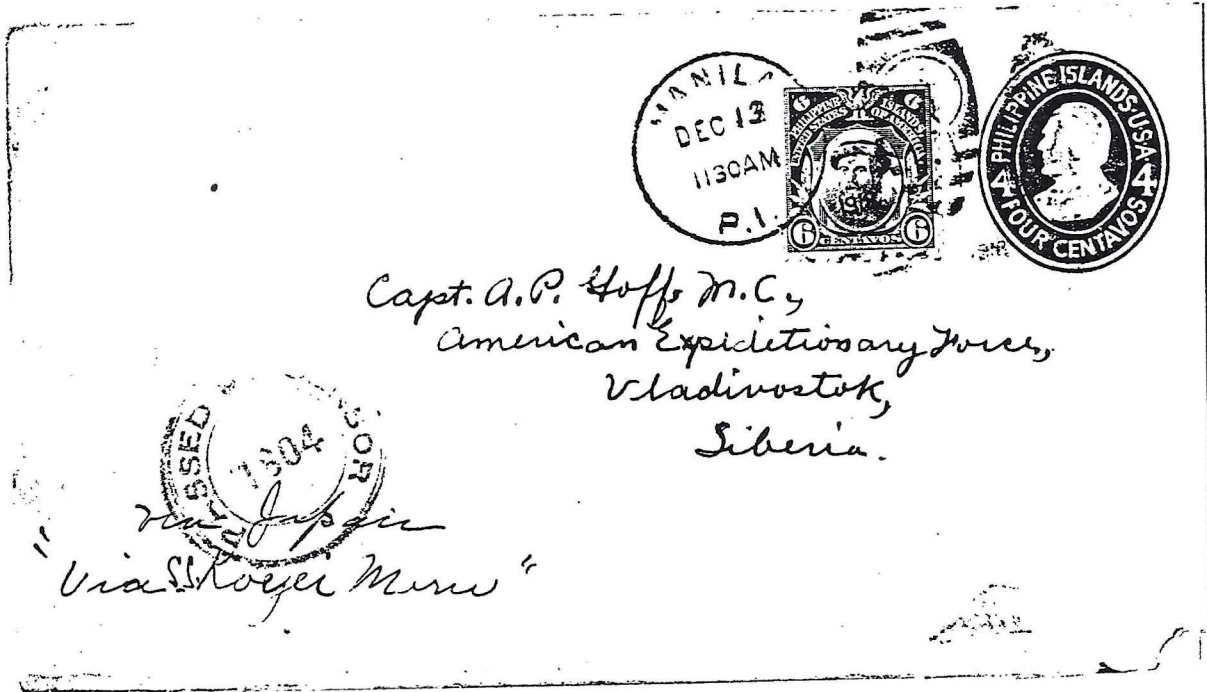 MANILA
DEC 13
1130AM
P.I.
6 6
PHILIPPINE ISLANDS
UNITED STATES OF AMERICA
6 CENTAVOS 6
PHILIPPINE ISLANDS·U·S·A·
4 4
FOUR CENTAVOS
Capt. A.P. Hoff, M.C.,
American Expiditionary Forces,
Vladivostok,
Siberia.
PASSED CENSOR
1804
via Japan
"Via S.S. Maru"